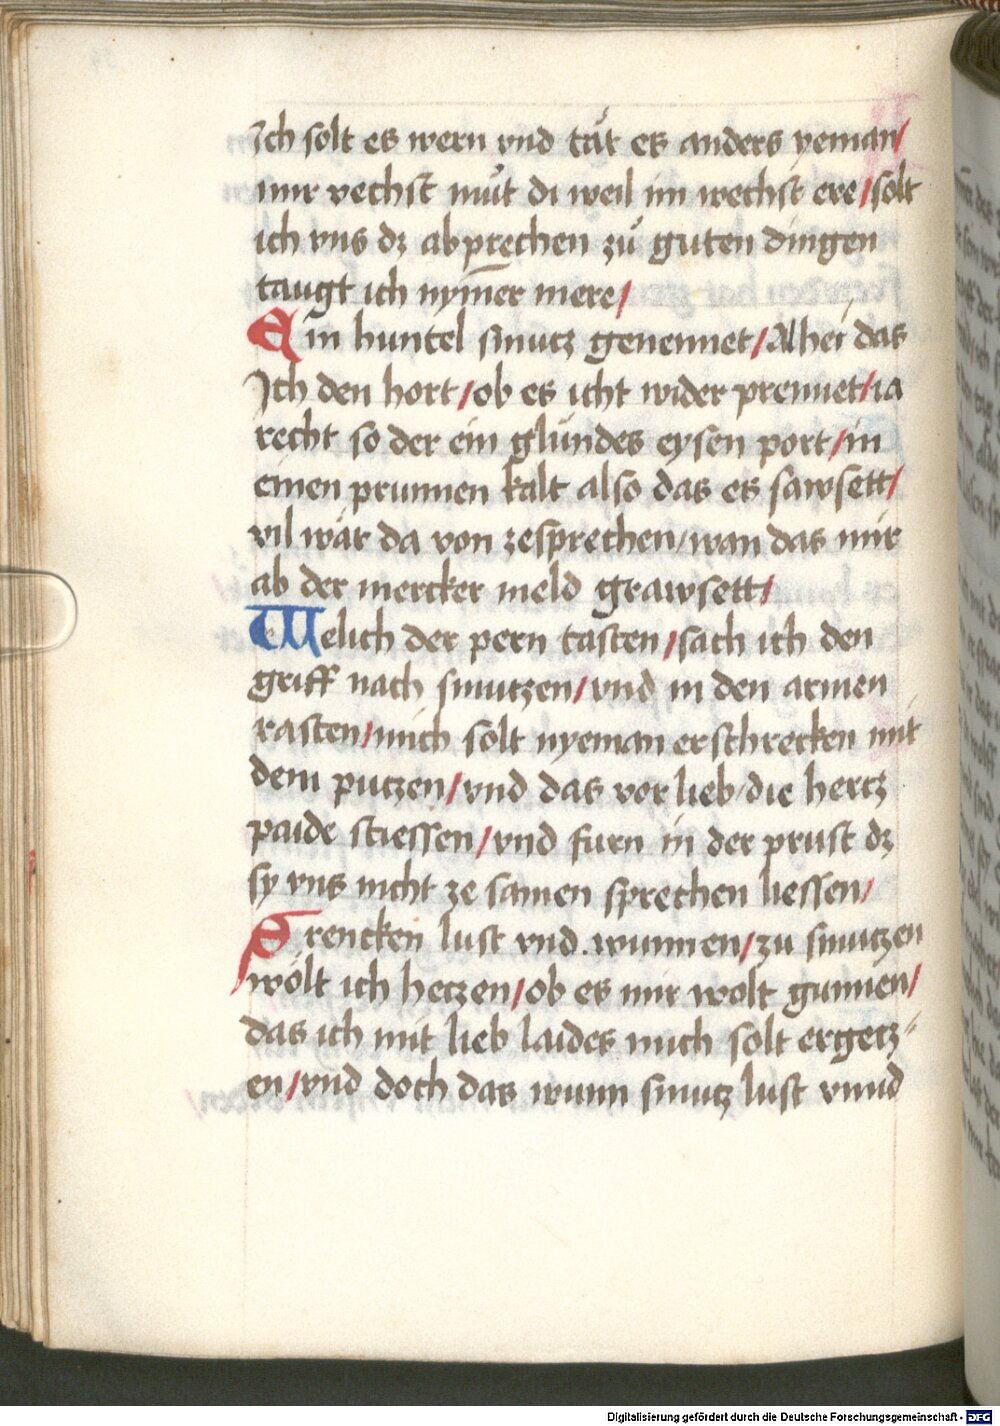 Ich solt es wern vnd tät es anders yeman/
mir rechst mǔt di weil im wechst ere/solt
ich vns dz ab prechen zǔ guten dingen
taugt ich nym̄er mere/
Ein huntel smutz genennet/Alhei das
Ich den hort/ob es icht wider prennet/ia
recht so der ein glündes eysen port/in
einen prunnen kalt also das es sawsett/
vil wär da von zesprechen/wan das mir
ab der mercker meld grawsett/
Welich der pern tasten/sach ich den
griff nach smutzen/vnd in den armen
rasten/mich solt nyeman erschrecken mit
dem putzen/vnd das vor lieb/die hertz
paide stiessen/vnd furn in der prust dz
sy vns nicht ze samen sprechen liessen/
Srencken lust vnd.wunnen/zu smutzen
wölt ich hetzen/ob es mir wolt gunnen/
das ich mit lieb laides mich solt ergetz-
en/vnd doch das wunn smutz lust vnnd
Digitalisierung gefördert durch die Deutsche Forschungsgemeinschaft - DFG